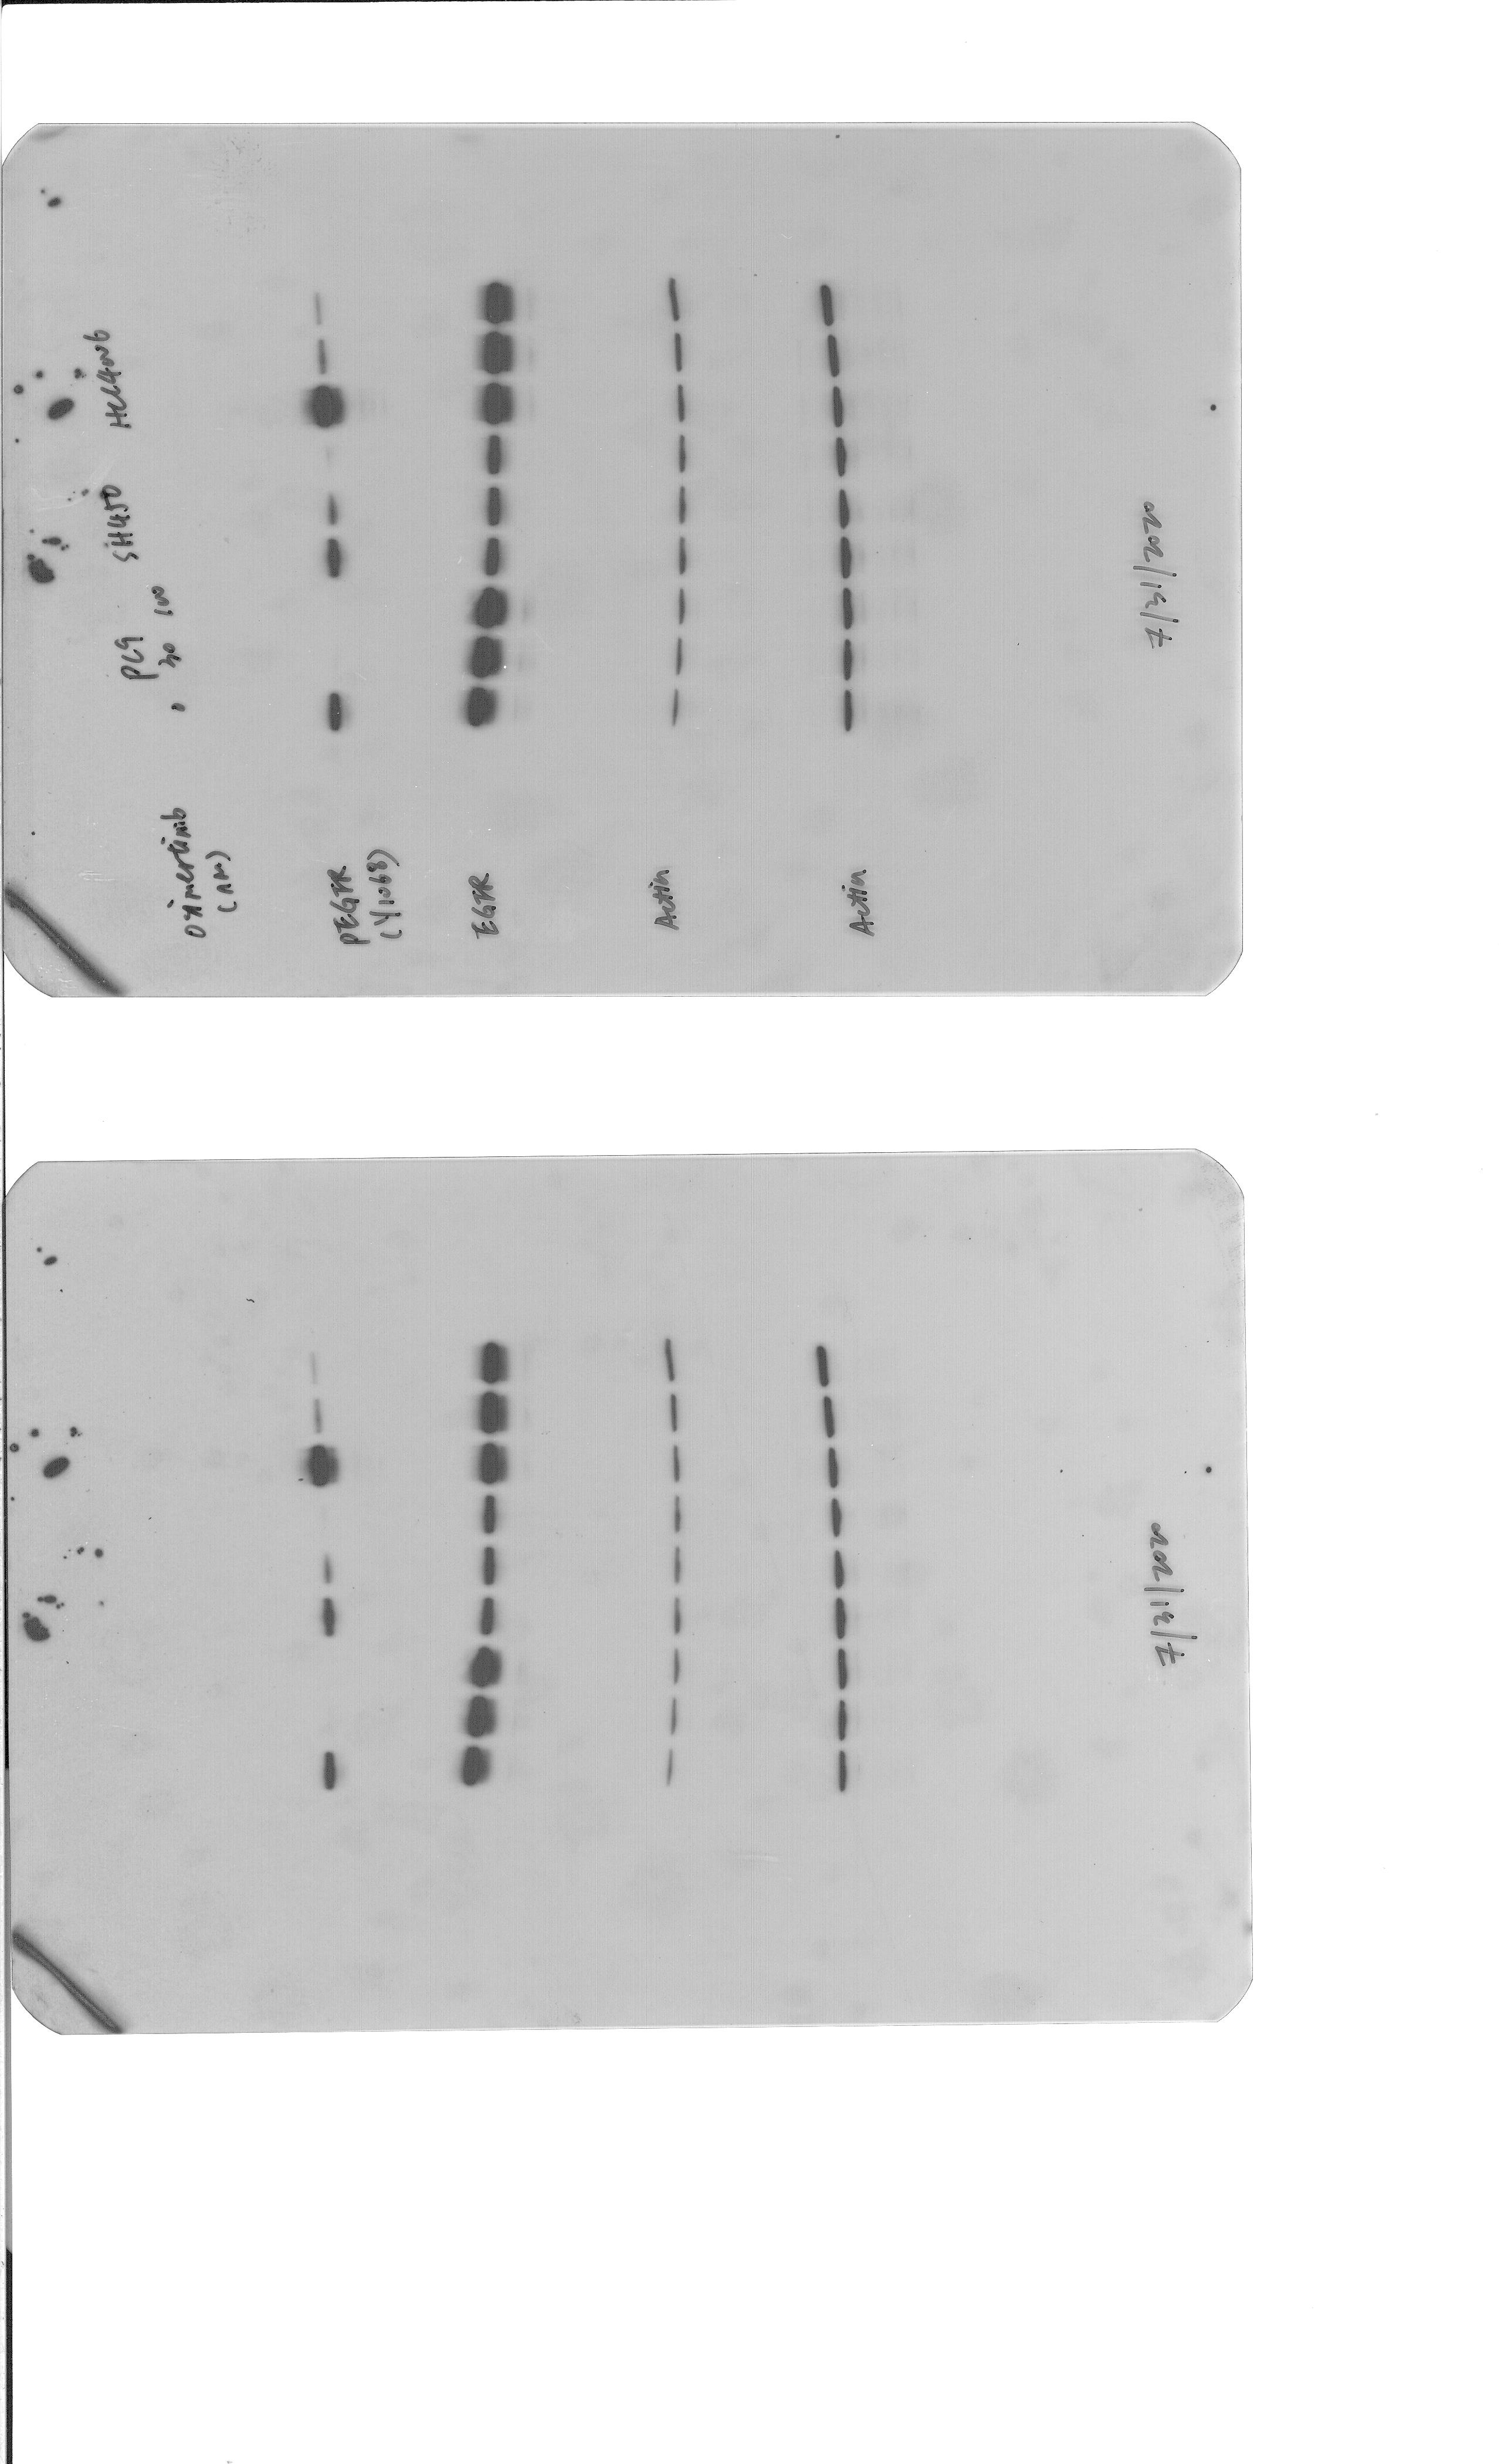 7/31/2020
PC9 SH450 HCC4006
0 30 100
Osimertinib
(nM)
pEGFR
(Y1068)
EGFR
Actin
Actin
7/31/2020